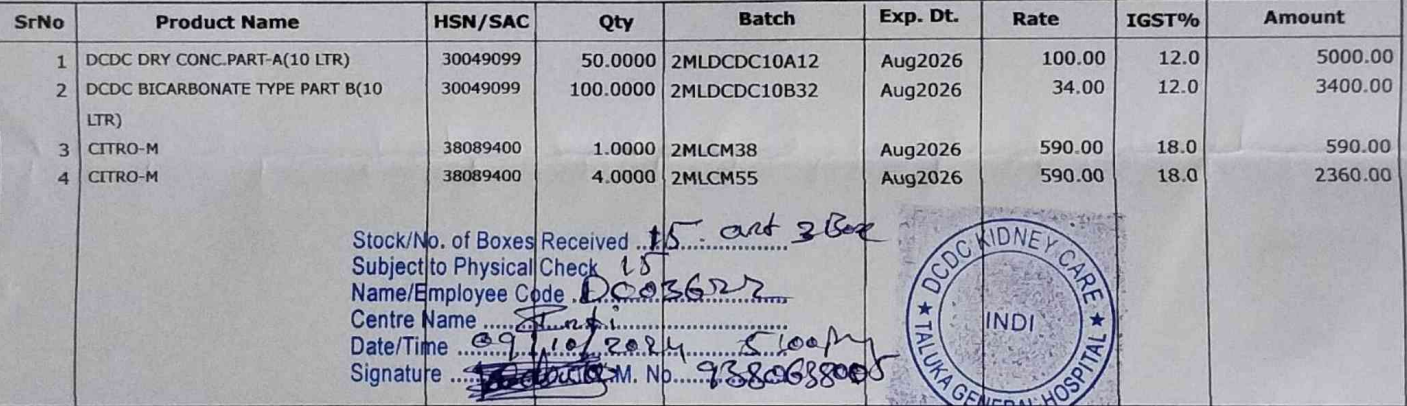 SrNo Product Name HSN/SAC Qty Batch Exp. Dt. Rate IGST% Amount
1 DCDC DRY CONC.PART-A(10 LTR) 30049099 50.0000 2MLDCDC10A12 Aug2026 100.00 12.0 5000.00
2 DCDC BICARBONATE TYPE PART B(10 30049099 100.0000 2MLDCDC10B32 Aug2026 34.00 12.0 3400.00
LTR)
3 CITRO-M 38089400 1.0000 2MLCM38 Aug2026 590.00 18.0 590.00
4 CITRO-M 38089400 4.0000 2MLCM55 Aug2026 590.00 18.0 2360.00
Stock/No. of Boxes Received 15. and 3 Box
Subject to Physical Check 15
Name/Employee Code
Centre Name Indi
Date/Time 09/10/2024 5:00pm
Signature M. No. 9380638005
DCDC KIDNEY CARE
INDI
TALUKA GENERAL HOSPITAL